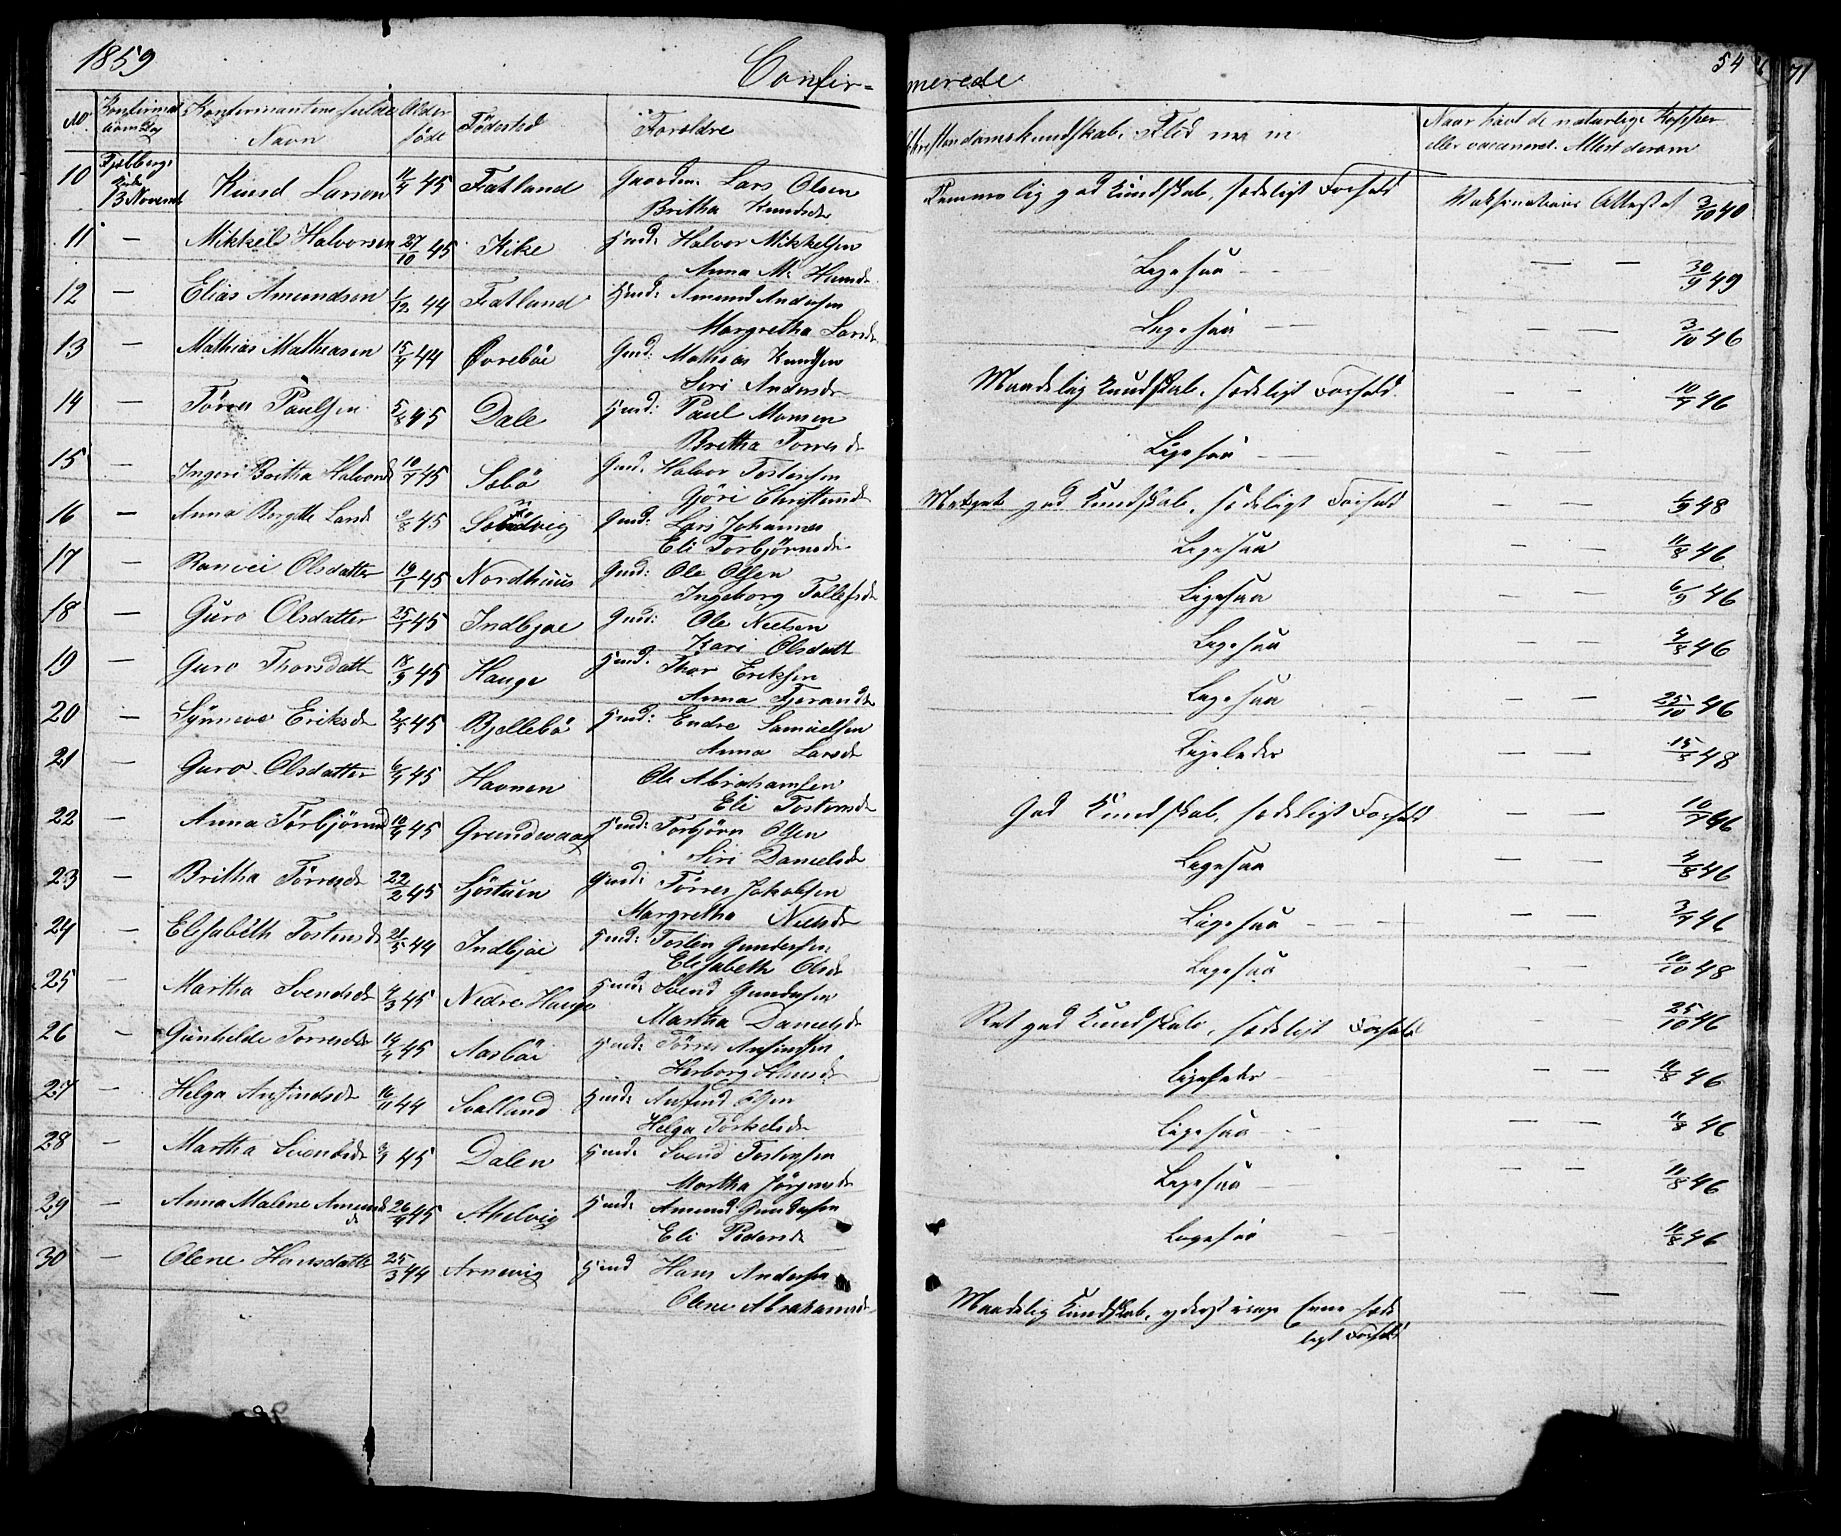 1859
Confir-
merede
54
71
No.
Konfirmationsdag
Konfirmantens fulde Navn
Alder født
Fødested
Forældre
Christendomskundskab, Flid m m
Naar havt de naturlige Kopper
eller vaccineret. Attest derom
10 Fjelbergs Kirke 13 November Knud Larsen 45 Fatland Gaardm. Lars Olsen
Britha Knudsdr Temmelig god Kundskab, sædeligt Forhold Vaksinations Attest af 3/10 40
11 — Mikkel Halvorsen 27/10 45 Kike Gmd: Halvor Mikkelsen
Anna M. Hansdr Ligesaa — — 30/9 49
12 — Elias Amundsen 1/12 44 Fatland Gmd: Amund Andersen
Margretha Larsdr Ligesaa — — 3/10 46
13 — Mathias Mathiasen 15/9 44 Øvrebøe Gmd: Mathias Knudsen
Siri Andersdr Maadelig Kundskab, sædeligt Forhold — 10/9 46
14 — Tørres Paulsen 5/8 45 Dale Gmd: Paul Monsen
Britha Torresdr Ligesaa — —
15 — Ingeri Britha Halvorsd 10/7 45 Sæbø Gmd. Halvor Tostensen
Gjöri Christensdr Meget god Kundskab, sædeligt Forhold — — 48
16 — Anna Birgitte Larsdr 9/8 45 Gmd: Lars Johannes
Eli Torbjørnsdr Ligesaa — — 11/8 46
17 — Ranvei Olsdatter 19/1 45 Nordhuus Gmd: Ole Olsen
Ingeborg Tollefsdr Ligesaa — — 6/9 46
18 — Guro Olsdatter 25/1 45 Indbjoe Gmd: Ole Nielsen
Kari Olsdatt Ligesaa — — 4/8 46
19 — Guro Thorsdatt 18/3 45 Hauge Gmd. Thor Eriksen
Anna Tjerandsdr Ligesaa — — 25/10 46
20 — Synneve Eriksdr 45 Bjellebö Gmd: Endre Samuelsen
Anna Larsdr Ligeledes — — 15/8 48
21 — Guro Olsdatter 45 Havnen Ole Abrahamsen
Eli Tostensdr God Kundskab, sædeligt Forhold — — 10/9 46
22 — Anna Torbjörnsd 10/4 45 Grundevaag Gmd: Torbjörn Olsen
Siri Danielsdr Ligesaa — — 4/8 46
23 — Britha Törresdr 22/2 45 Sjöstuen Gmd: Törres Jakobsen
Margretha Nielsdr Ligesaa — — 46
24 — Elisabeth Tostensdr 21/5 44 Indbjoe Gmd: Tosten Gundersen
Elisabeth Olsdr Ligesaa — — 10/10 48
25 — Martha Svendsdr 4/3 45 Nedre Hauge Gmd: Svend Gundersen
Martha Danielsdr Ret god Kundskab, sædeligt Forhold — — 25/10 46
26 — Gunhilde Torresdr 14/4 45 Aarbøe Gmd: Törres Anfindsen
Herborg Hansdr Ligeledes — — 11/8 46
27 — Helga Anfindsdr 16/11 44 Svalland Gmd: Anfind Olsen
Helga Törkelsdr Ligesaa — — 11/8 46
28 — Martha Svendsdr 45 Dalen Gmd: Svend Tostensen
Martha Jörgensdr Ligesaa — — 11/8 46
29 — Anna Malene Amundsdr 26/4 45 Ahelvig Gmd: Amund Gundersen
Eli Pedersdr Ligesaa — — 11/8 46
30 — Olene Hansdatter 25/3 44 Arnevig Gmd Hans Andersen
Olene Abrahamsdr Maadelig Kundskab, yderst ringe Evne sæde
ligt Forhold — —